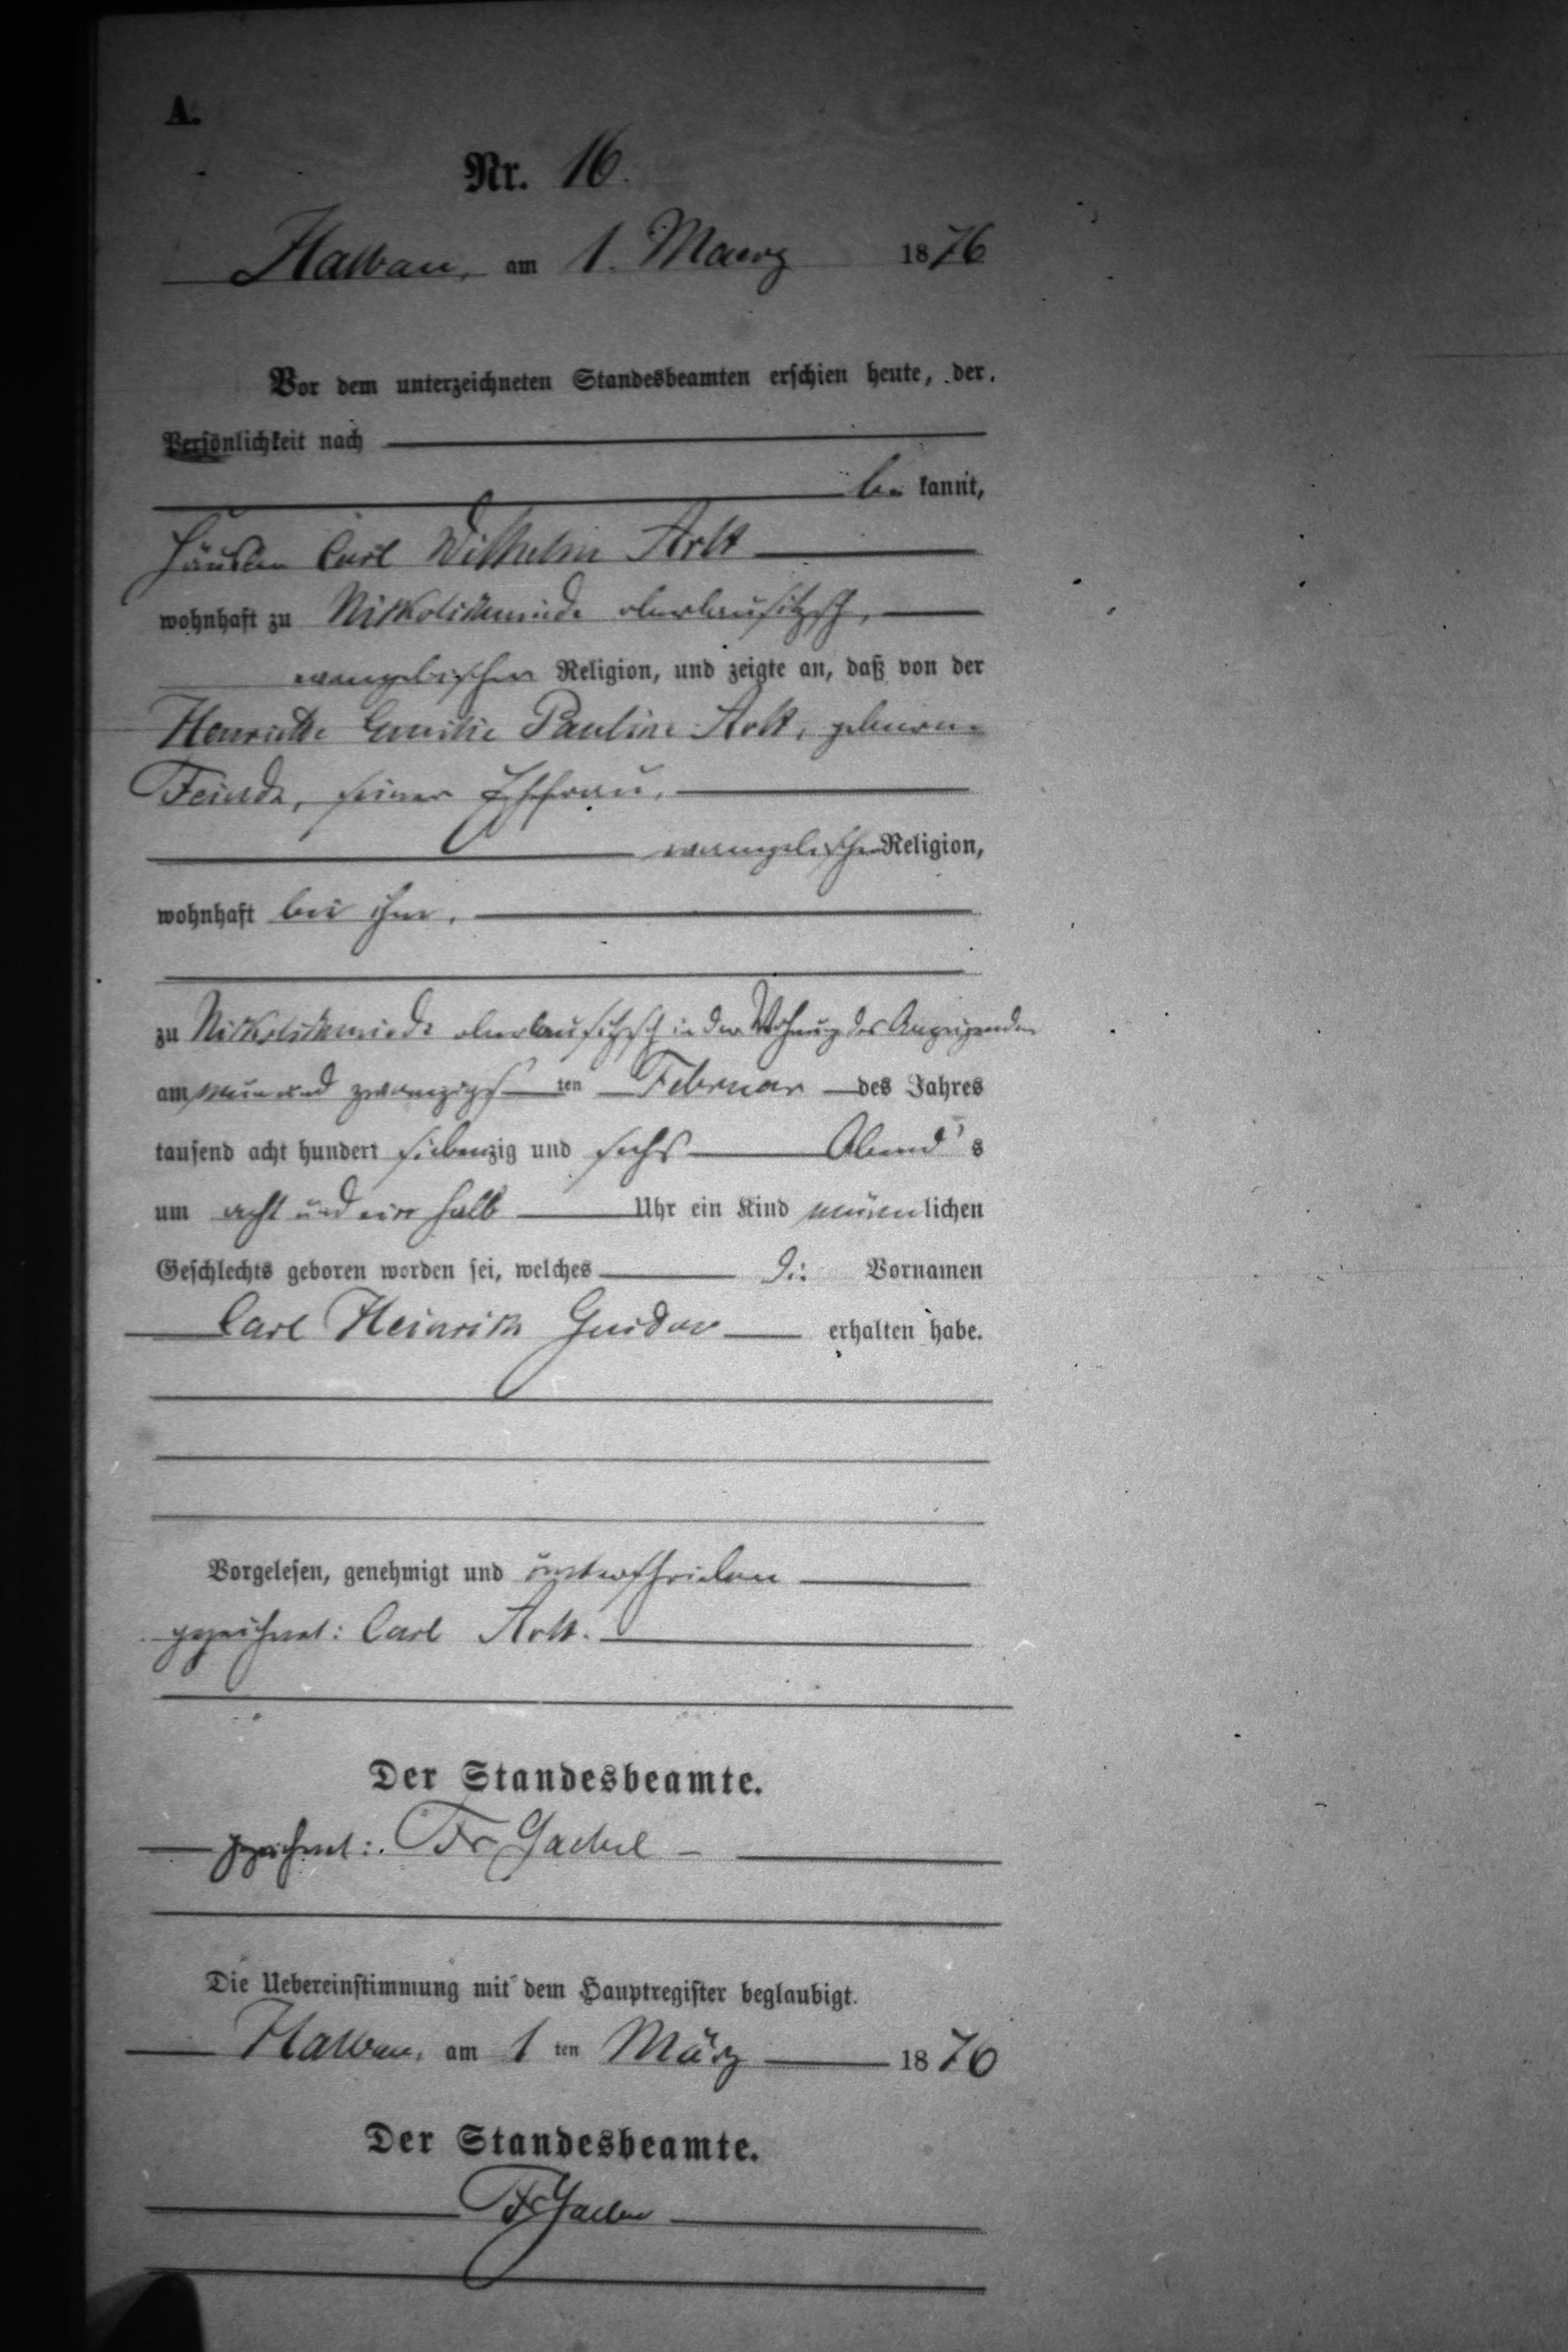 A.
Nr. 16.
Halbau, am 1. Maerz 1876
Vor dem unterzeichneten Standesbeamten erschien heute, der
Persönlichkeit nach
be kannt,
Häusler Carl Wilhelm Arlt
wohnhaft zu Nikolschmiede oberlausitzsch,
evangelischer Religion, und zeigte an, daß von der
Henriette Emilie Pauline Arlt, geborene
Feinde, seiner Ehefrau,
evangelischer Religion,
wohnhaft bei ihm,
zu Nikolschmiede oberlausitzsch in der Wohnung des Anzeigenden
am neun und zwanzigsten Februar des Jahres
tausend acht hundert siebenzig und sechs Abend's
um acht und ein halb Uhr ein Kind männlichen
Geschlechts geboren worden sei, welches die Vornamen
Carl Heinrich erhalten habe.
Vorgelesen, genehmigt und unterschrieben
gezeichnet: Carl Arlt.
Der Standesbeamte.
gezeichnet: Fr
Die Uebereinstimmung mit dem Hauptregister beglaubigt.
Halbau, am 1 ten März 1876
Der Standesbeamte.
Fr